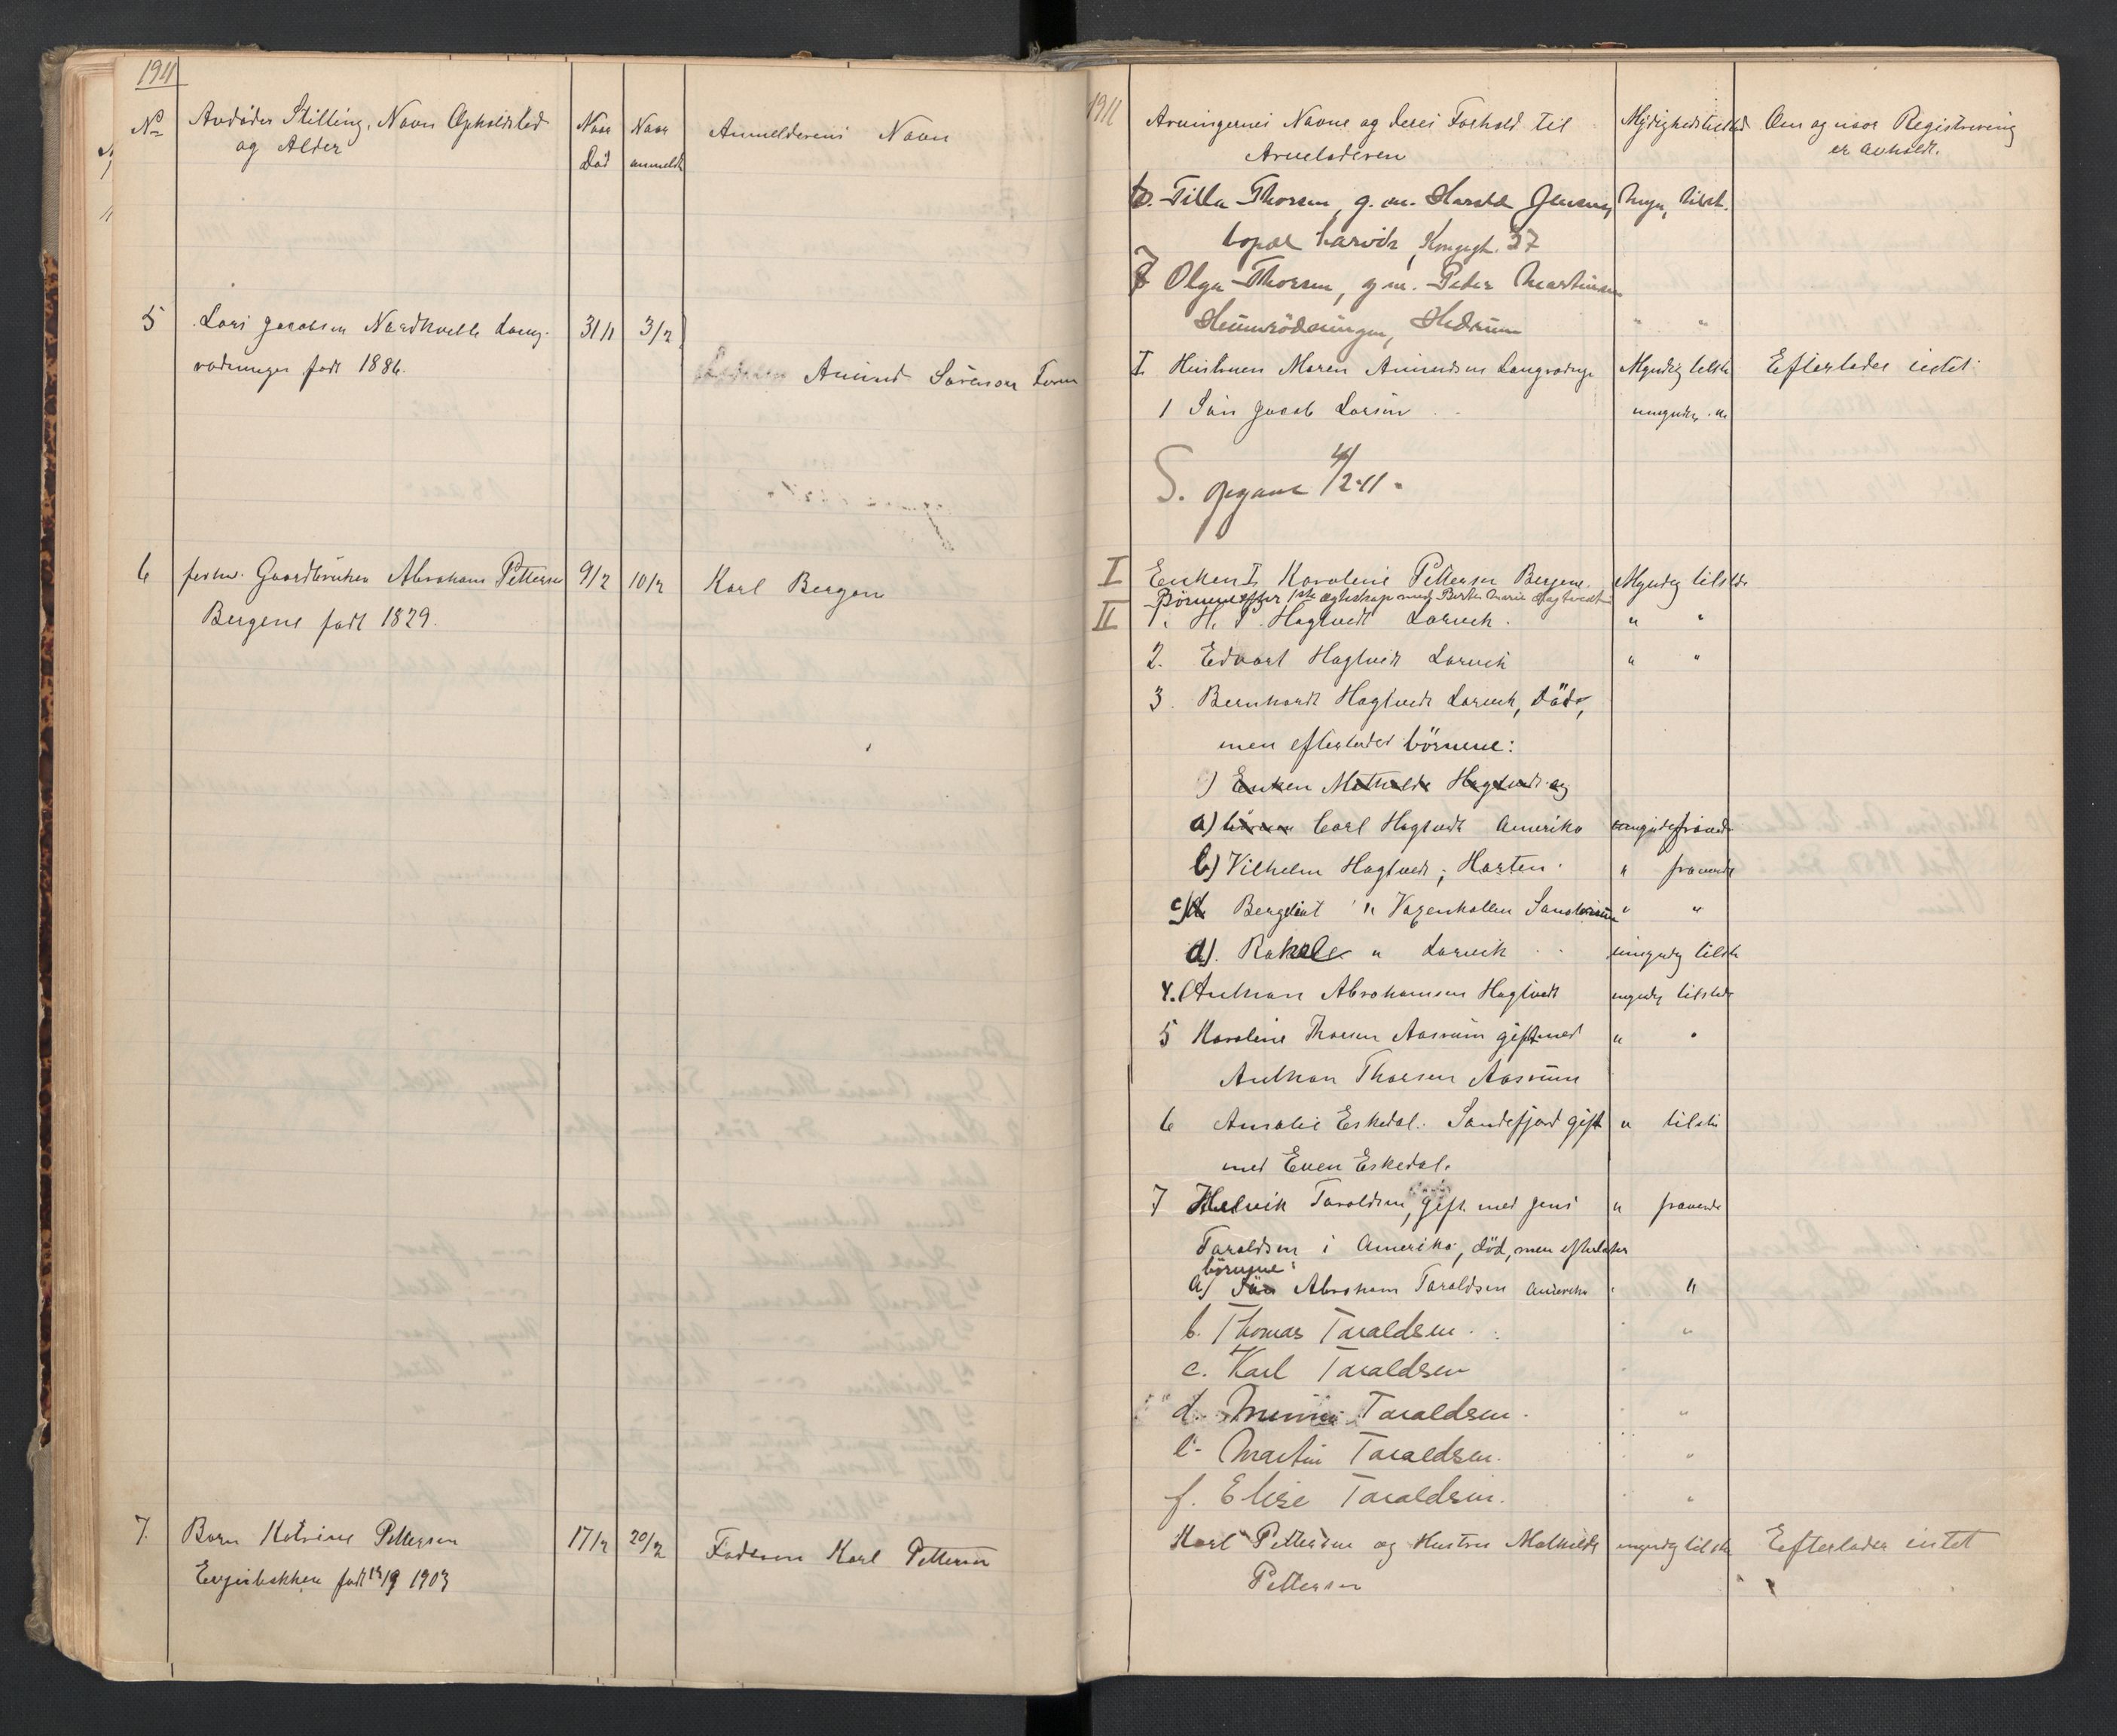 1911
No
Avdödes Stilling, Navn Opholdsted
og Alder
Naar
Död
Naar
anmeldt
Anmelderens Navn
5
Lars Jacobsen Nordkvelle Lang-
rödningen født 1886.
31/1
3/2
Amund Sörensen
6
forhv. Gaardbruker Abraham Pettersen
Bergene født 1829.
9/2
10/2
Karl Bergene
7.
Barn Katrine Pettersen
født 19/9 1903
17/2
20/2
Faderen Karl Pettersen
1911
Arvingernes Navne og deres Forhold til
Arveladeren
Myndighedstilstand
Om og naar Registrering
er avholdt.
Tilla Thorsen, g. m. Harald Jensen,
Myn, tilst.
bopæl Larvik, Kongegt. 37
7 Olga Thorsen, g m. Peder Martinsen
Hedrum " "
I. Hustruen Maren Amundsen Langrødnge
Myndig tilste
Efterlader intet
1 Sön Jacob Larsen
umyndig
S. opgave 4/2-11.
I
Enken I, Karoline Pettersen Bergene.
Myndig tilstede
Börnene efter 1ste ægteskap med Berthe Marie Hagtvedt:
II
1. H. P. Hagtvedt Larvik. " "
2. Edvart Hagtvedt Larvik " "
3. Bernhardt Hagtvedt Larvik, död,
men efterlader börnene:
Enken Mathilde Hagtvedt og
a) Carl Hagtvedt Amerika
b) Vilhelm Hagtvedt, Horten. " fraværende
c) Bergliot " Sanatorium " "
d). Rakel " Larvik umyndig tilste
4. Anthon Abrahamsen Hagtvedt myndig tilstede
5 Karoline Thorsen Aasrum gift med " "
Anthon Thorsen Aasrum
6 Amalie Eskedal. Sandefjord gift " tilste
med Even Eskedal.
7 Helvik Taraldsen, gift med Jens " fraværende
Taraldsen i Amerika, död, men efterlater
börnene:
a) Sön Abraham Taraldsen Amerika "
b. Thomas Taraldsen. "
c. Karl Taraldsen
d. Minni Taraldsen. "
e. Martin Taraldsen. "
f. Elise Taraldsen. "
Karl Pettersen og Hustru Mathilde myndig tilste
Efterlader intet
Pettersen